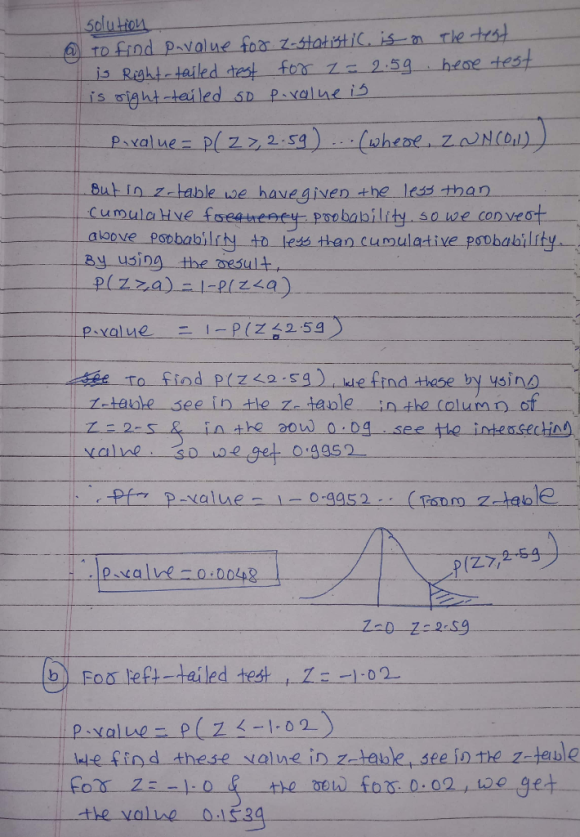 solution
(a) To find P-value for z-statistic. is The test
is Right-tailed test for z = 2.59. here test
is right-tailed so P-value is
P-value = P(Z ≥ 2.59) ... (where, Z ~ N(0,1))
But in z-table we have given the less than
cumulative frequency probability. so we convert
above probability to less than cumulative probability.
By using the result,
P(Z ≥ a) = 1 - P(Z < a)
P-value = 1 - P(Z ≤ 2.59)
see To find P(Z < 2.59), we find these by using
z-table see in the z-table in the column of
Z = 2.5 & in the row 0.09. see the intersecting
value. so we get 0.9952
∴ P-value = 1 - 0.9952 .. (From z-table
∴ P-value = 0.0048
P(Z ≥, 2.59)
Z=0 Z=2.59
(b) For left-tailed test, Z = -1.02
P-value = P(Z ≤ -1.02)
We find these value in z-table, see in the z-table
for Z = -1.0 & the row for 0.02, we get
the value 0.1539